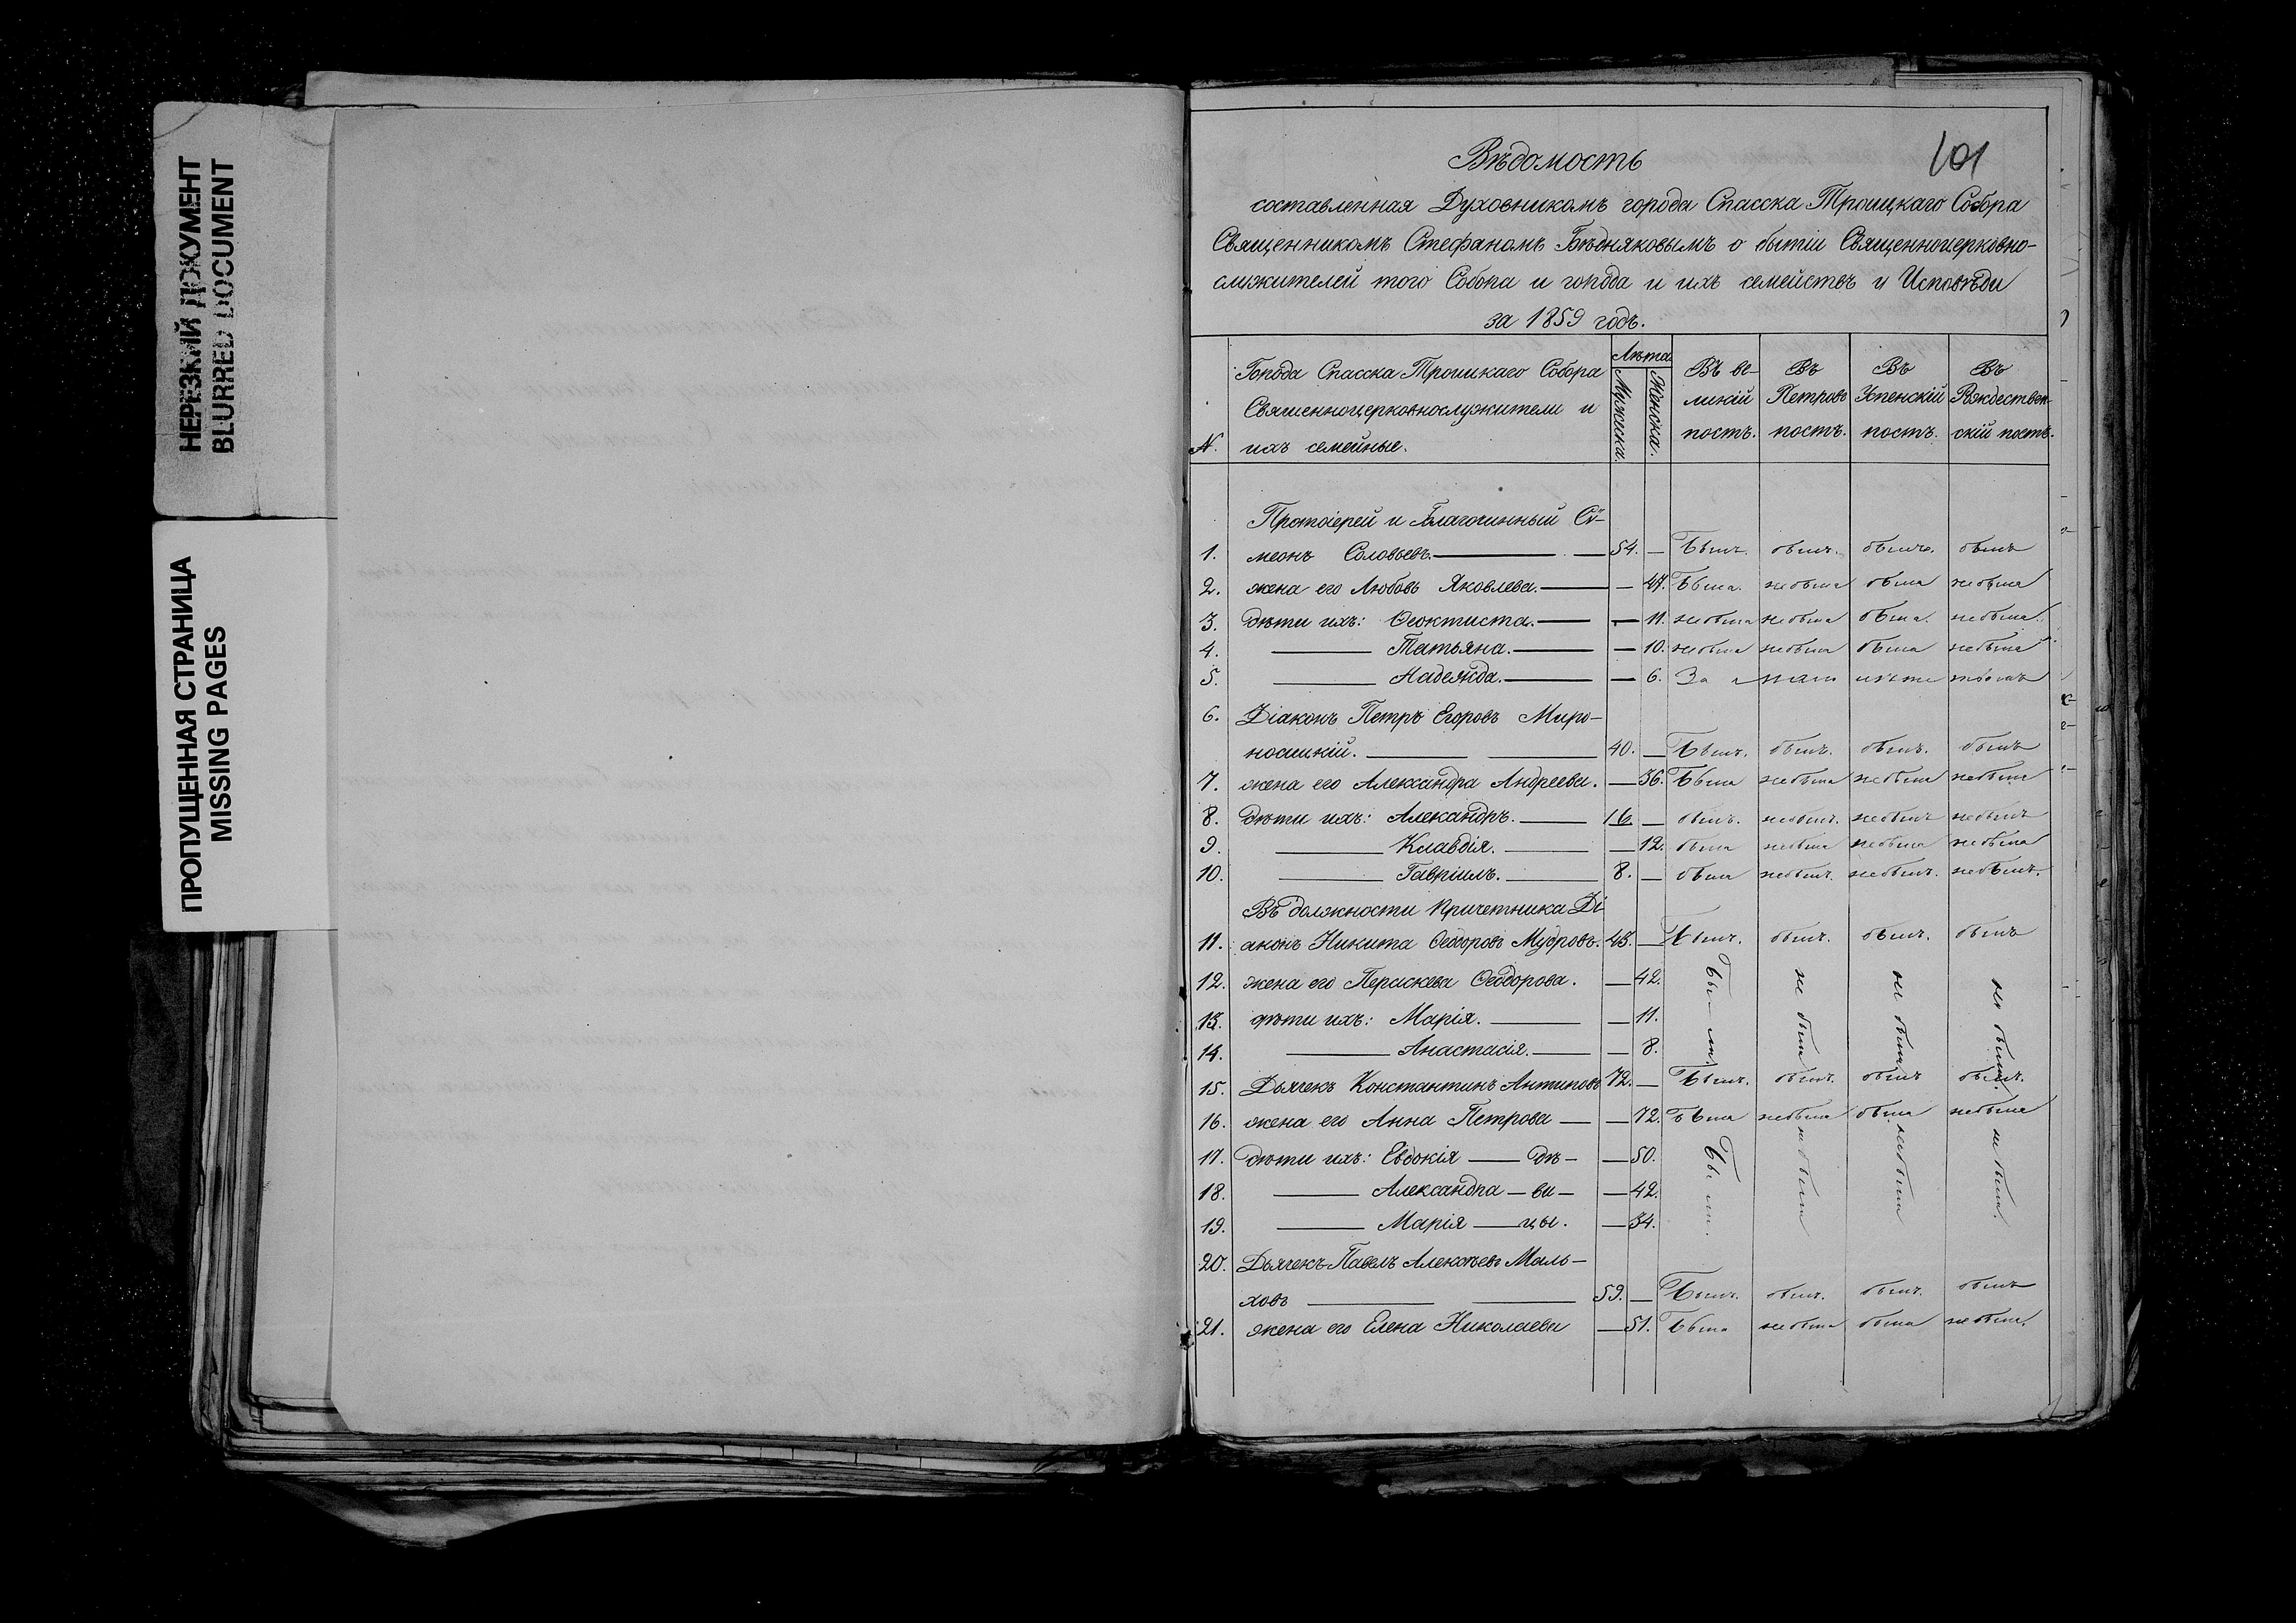 НЕРЕЗКИЙ ДОКУМЕНТ
BLURRED DOCUMENT
ПРОПУЩЕННАЯ СТРАНИЦА
MISSING PAGES
101
Вѣдомость
составленная Духовникомъ города Спасска Троицкаго Собора
Священникомъ Стефаномъ Бѣдняковымъ о бытіи Священноцерковно-
служителей того Собора и города и ихъ семействъ у Исповѣди
за 1859 годъ.
№. Города Спасска Троицкаго Собора Священноцерковнослужители и ихъ семейные. Лѣта Мужеска. Женска. Въ великій постъ. Въ Петровъ постъ. Въ Успенскій постъ. Въ Рождественскій постъ.
Протоіерей и Благочинный Си-
1. меонъ Соловьевъ. — 54. — Былъ. былъ. былъ. былъ
2. жена его Любовь Яковлева. — 47. Была. небыла была небыла
3. дѣти ихъ: Феоктиста. — 11. небыла небыла была. небыла.
4. — Татьяна. — 10. небыла небыла была небыла
5. — Надежда. — 6. За
6. Діаконъ Петръ Егоровъ Миро-
носицкій. — 40. — Былъ. былъ. былъ. былъ
7. жена его Александра Андреева. — 36. Была небыла небыла небыла
8. дѣти ихъ: Александръ. — 16 — былъ. небылъ. небылъ небылъ
9. — Клавдія. — 12. была небыла небыла небыла
10. — Гавріилъ. — 8. — былъ небылъ. небылъ. небылъ.
Въ должности Причетника Ді-
11. аконъ Никита Феодоровъ Мудровъ. 43. — Былъ. былъ. былъ. былъ
12. жена его Параскева Феодорова. — 42.
13. дѣти ихъ: Марія. — 11. Бы-ли. не были не были не были.
14. — Анастасія. — 8.
15. Дьячекъ Константинъ Антиповъ 72. — Былъ. былъ. былъ былъ.
16. жена его Анна Петрова — 72. Была небыла была небыла
17. дѣти ихъ: Евдокія — дѣ- — 50.
18. — Александра — ви- — 42. Были. не были не были не были.
19. — Марія — цы. — 34.
20. Дьячекъ Павелъ Алексѣевъ Маль-
ховъ — 59. — Былъ. былъ. былъ. былъ
21. жена его Елена Николаева — 51. Была небыла была небыла.